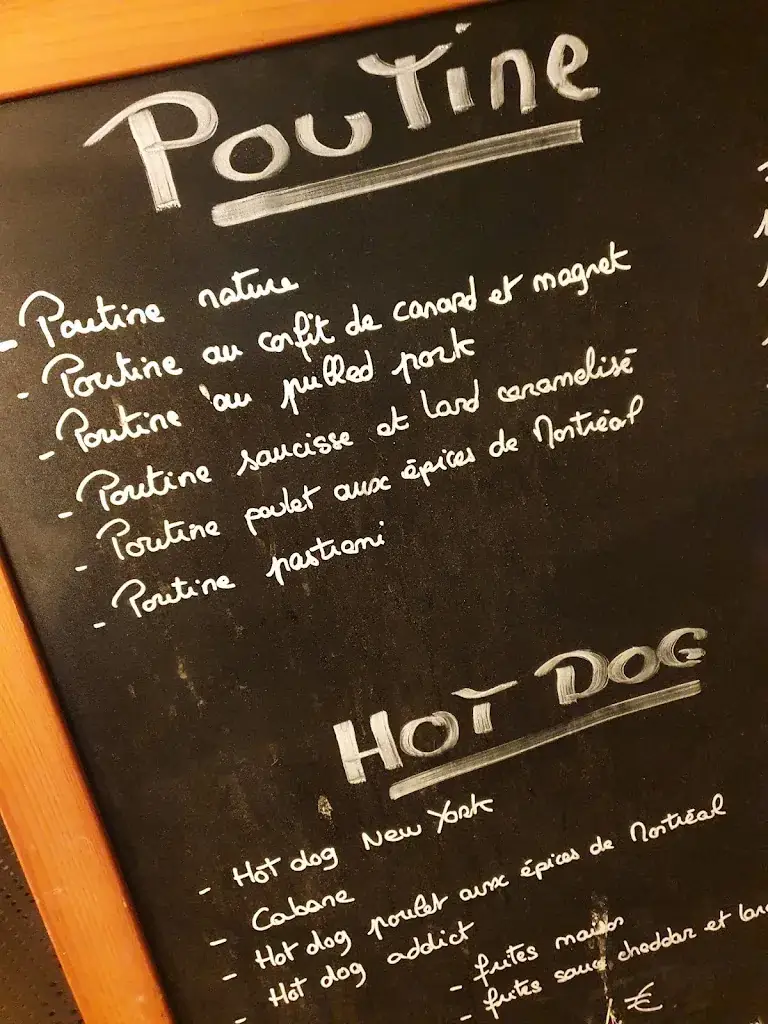 Poutine
- Poutine nature
- Poutine au confit de canard et magret
- Poutine au pulled pork
- Poutine saucisse et lard caramelisé
- Poutine poulet aux épices de Montréal
- Poutine pastrami
HOT DOG
- Hot dog New York
- Cabane
- Hot dog poulet aux épices de Montréal
- Hot dog addict
- frites maison
- frites sauce cheddar et lard
€